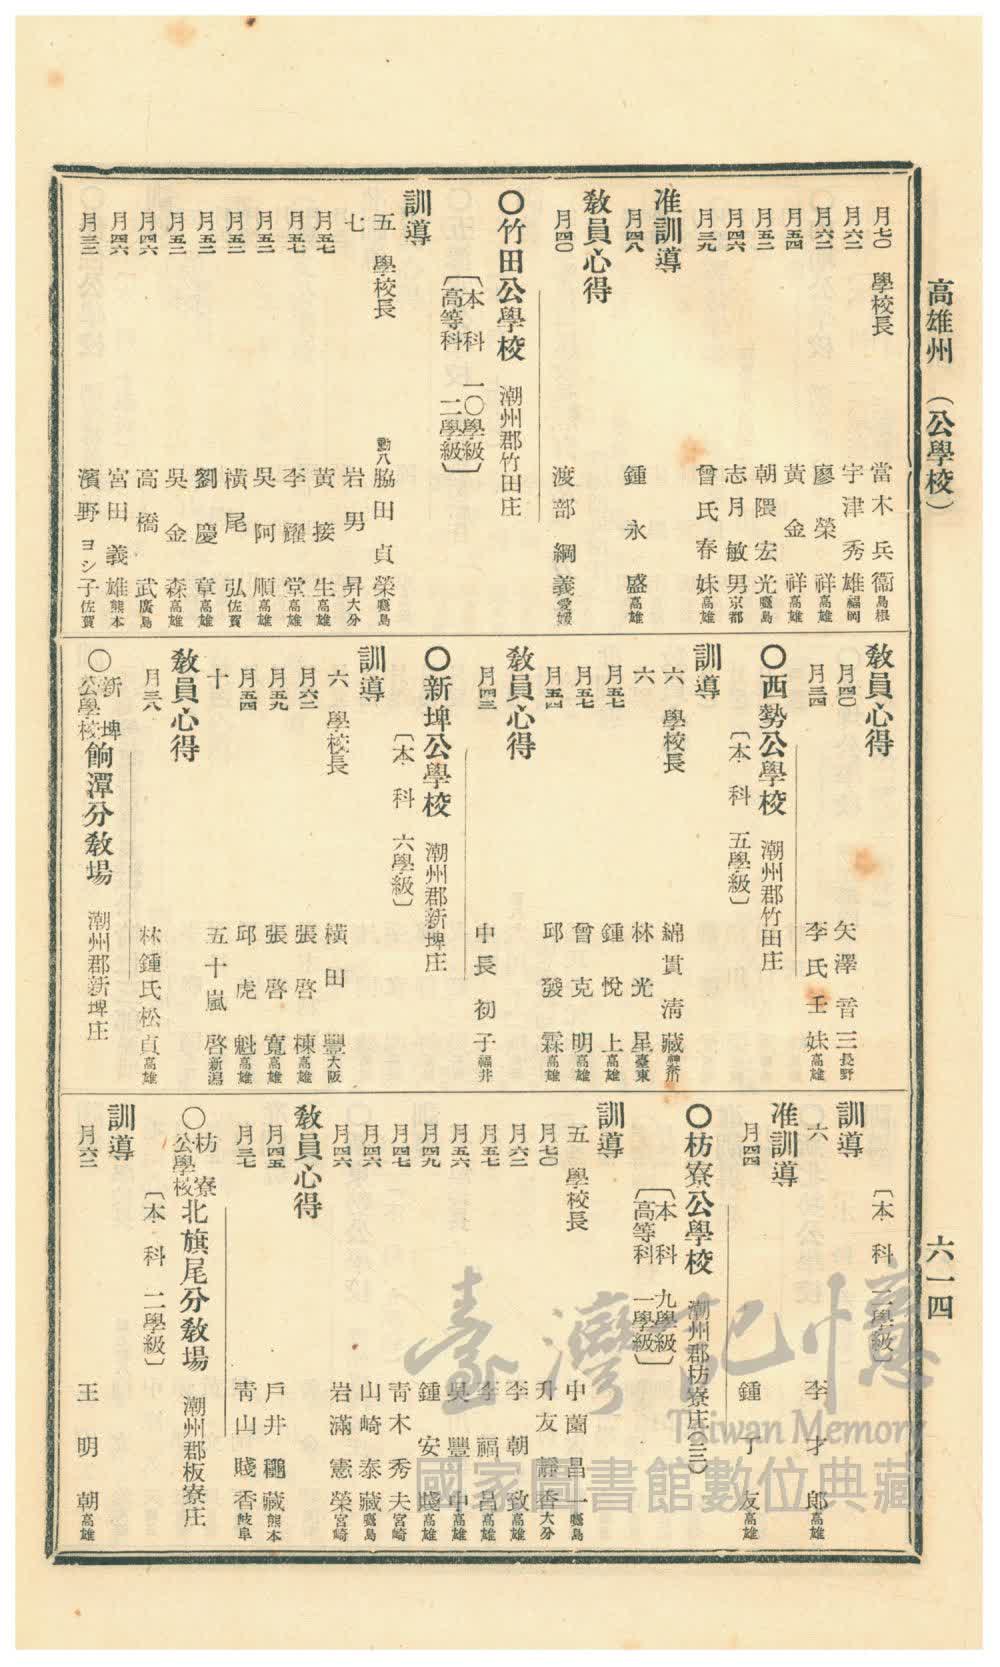 高雄州 (公學校)
六一四
月七〇 學校長 當木兵衞 島根
月六二 宇津秀雄 福岡
月六二 廖榮祥 高雄
月五四 黃金祥 高雄
月五二 朝隈宏光 鹿島
月四六 志月敏男 京都
月三九 曾氏春妹 高雄
准訓導
月四八 鍾永盛 高雄
敎員心得
月四〇 渡部綱義 愛媛
〇竹田公學校 潮州郡竹田庄
〔本科 一〇學級
高等科 二學級〕
訓導
五 學校長 勳八 脇田貞榮 鹿島
七 岩男昇 大分
月五七 黃接生 高雄
月五七 李耀堂 高雄
月五二 吳阿順 高雄
月五二 橫尾弘 佐賀
月五二 劉慶章 高雄
月五二 吳金森 高雄
月四六 高橋武 廣島
月四六 宮田義雄 熊本
月三三 濱野ヨシ子 佐賀
敎員心得
月四〇 矢澤音三 長野
月三四 李氏壬妹 高雄
〇西勢公學校 潮州郡竹田庄
〔本科 五學級〕
訓導
六 學校長 綿貫淸藏
六 林光星 臺東
月五七 鍾悅上 高雄
月五七 曾克明 高雄
月五四 邱發霖 高雄
敎員心得
月四三 中長初子 福井
〇新埤公學校 潮州郡新埤庄
〔本科 六學級〕
訓導
六 學校長 橫田豐 大阪
月六二 張啓棟 高雄
月五九 張啓寬 高雄
月五四 邱虎魁 高雄
十 五十嵐啓 新潟
敎員心得
月三八 林鍾氏松貞 高雄
〇新埤公學校餉潭分敎場 潮州郡新埤庄
〔本科 二學級〕
訓導
六 李才郞 高雄
准訓導
月四四 鍾了友 高雄
〇枋寮公學校 潮州郡枋寮庄(〇三)
〔本科 九學級
高等科 一學級〕
訓導
五 學校長 中薗昌一 鹿島
月七〇 升友靜香 大分
月六二 李朝致 高雄
月五七 李福昌 高雄
月五六 吳豐中 高雄
月四九 鍾安錢 高雄
月四七 靑木秀夫 宮崎
月四六 山崎泰藏 鹿島
月四六 岩滿憲榮 宮崎
敎員心得
月四五 戶井鷗藏 熊本
月三七 靑山賤香 岐阜
〇枋寮公學校北旗尾分敎場 潮州郡枋寮庄
〔本科 二學級〕
訓導
月六二 王明朝 高雄
臺灣記憶
Taiwan Memory
國家圖書館數位典藏